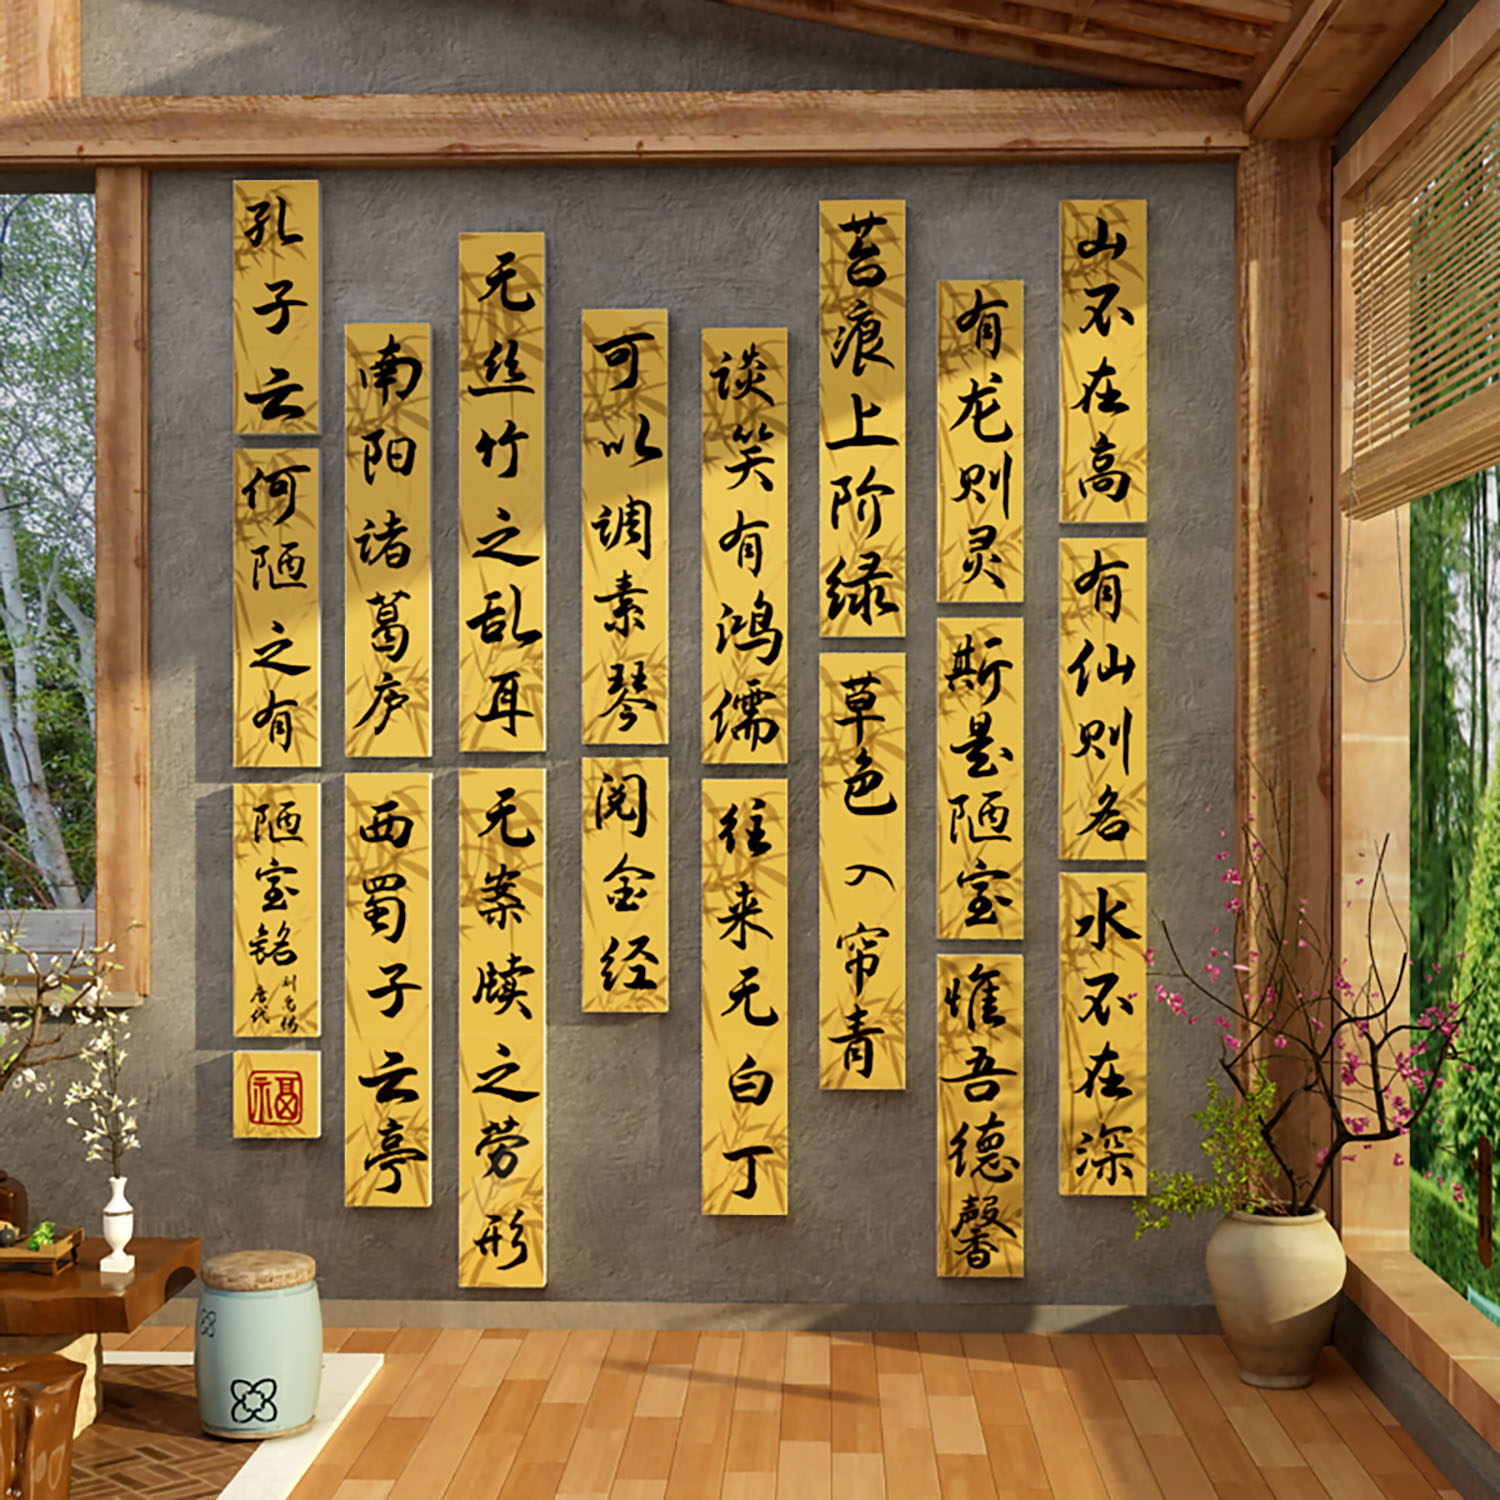 山不在高
有仙则名
水不在深
有龙则灵
斯是陋室
惟吾德馨
苔痕上阶绿
草色入帘青
谈笑有鸿儒
往来无白丁
可以调素琴
阅金经
无丝竹之乱耳
无案牍之劳形
南阳诸葛庐
西蜀子云亭
孔子云
何陋之有
陋室铭
刘禹锡
唐代
福